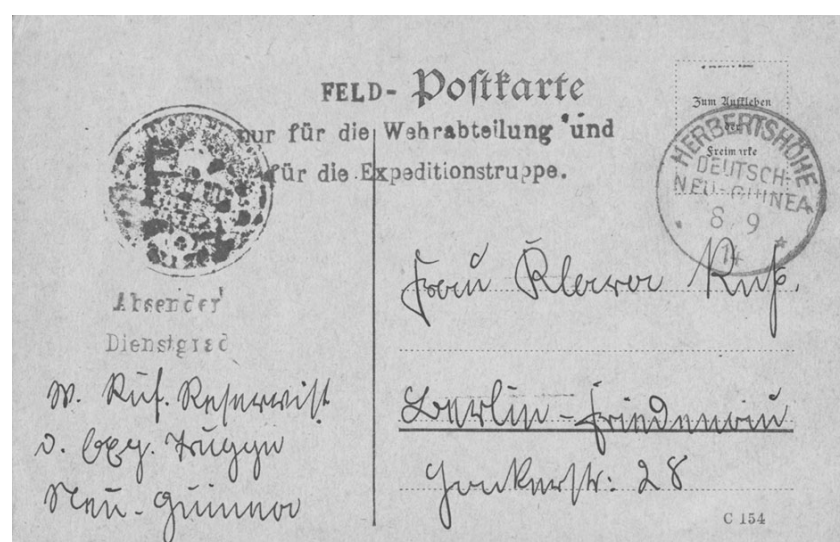 FELD- Postkarte
nur für die Wehrabteilung und
für die Expeditionstruppe.
Zum Aufkleben
der
Freimarke
HERBERTSHÖHE
DEUTSCH-
NEU-GUINEA
8/9
14
Absender
Dienstgrad
W. Ruf. Reservist
d. Exp. Truppe
Neu-Guinea
Frau Klara Ruf.
Berlin-Friedenau
28
C 154